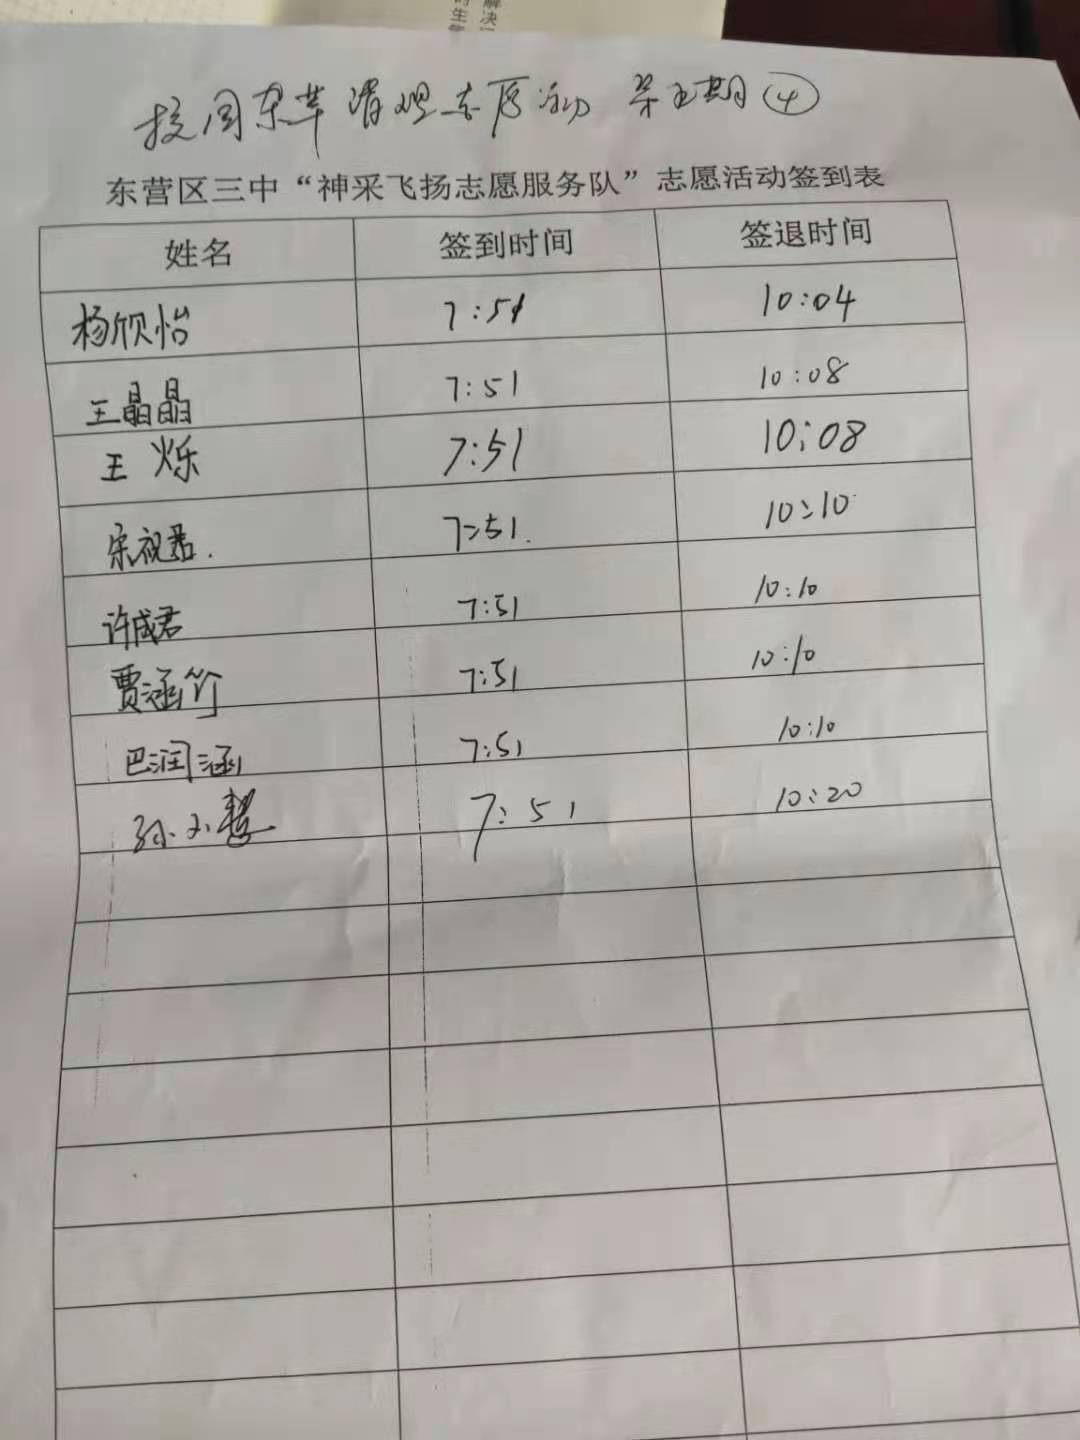 解决
时生
校园杂草清理志愿活动 第五期④
东营区三中“神采飞扬志愿服务队”志愿活动签到表
姓名 签到时间 签退时间
杨欣怡 7:51 10:04
王晶晶 7:51 10:08
王烁 7:51 10:08
宋祝君. 7:51. 10:10
许成君 7:51 10:10
贾涵竹 7:51 10:10
巴润涵 7:51 10:10
孙小慧 7:51 10:20